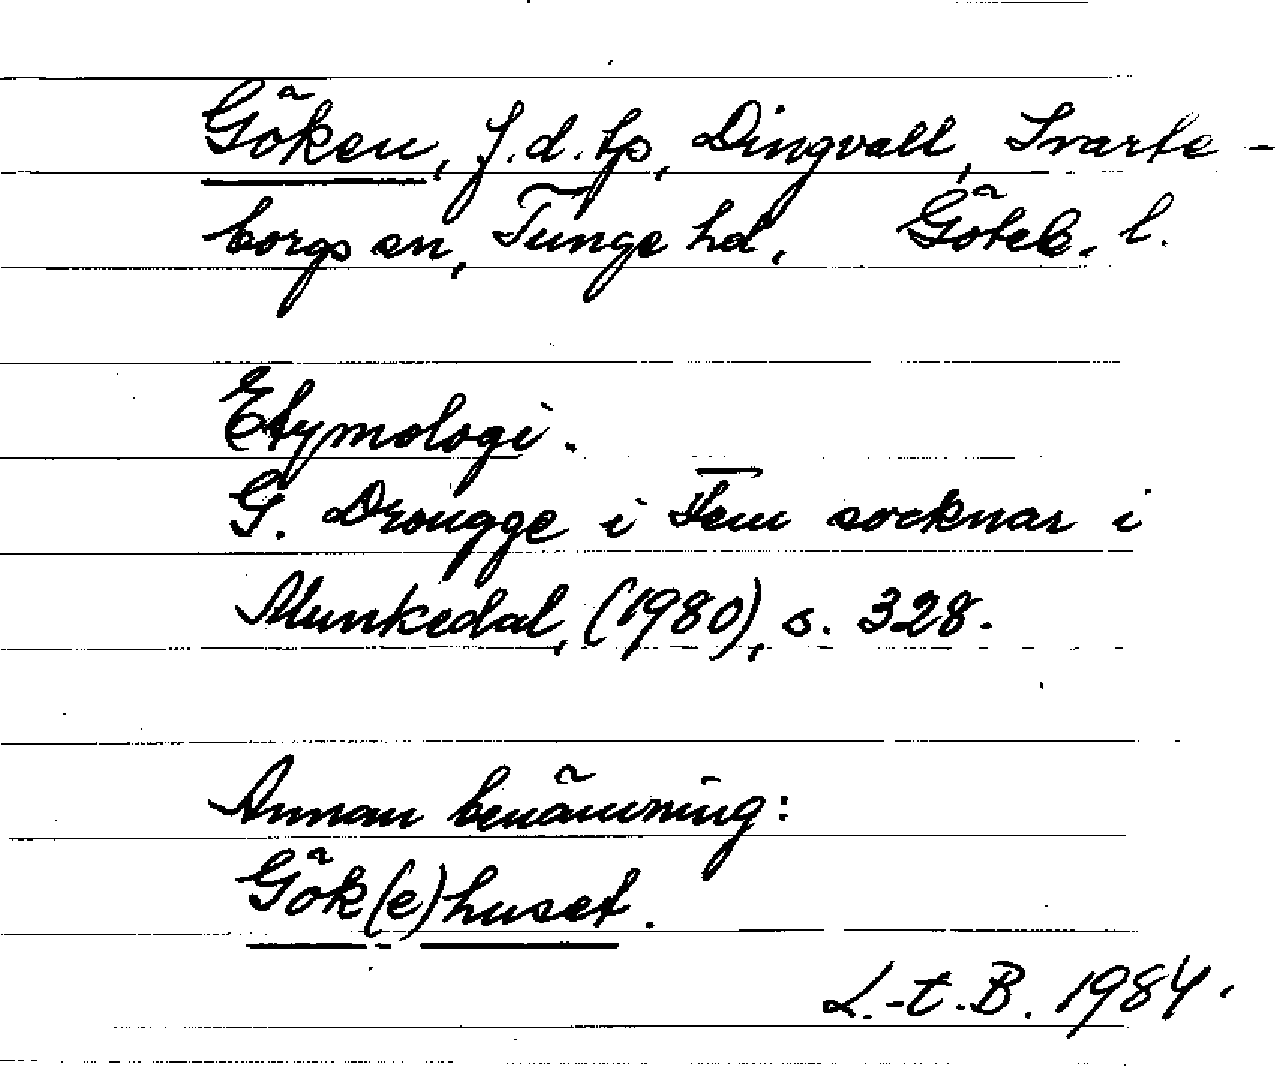 Göken, f.d. tp, Dingvall, Svarte-
borgs sn, Tunge hd, Göteb. l.
Etymologi.
G. Drougge i Fem socknar i
Munkedal, (1980), s. 328.
Annan benämning:
Gök(e)huset.
L.-t. B. 1984.